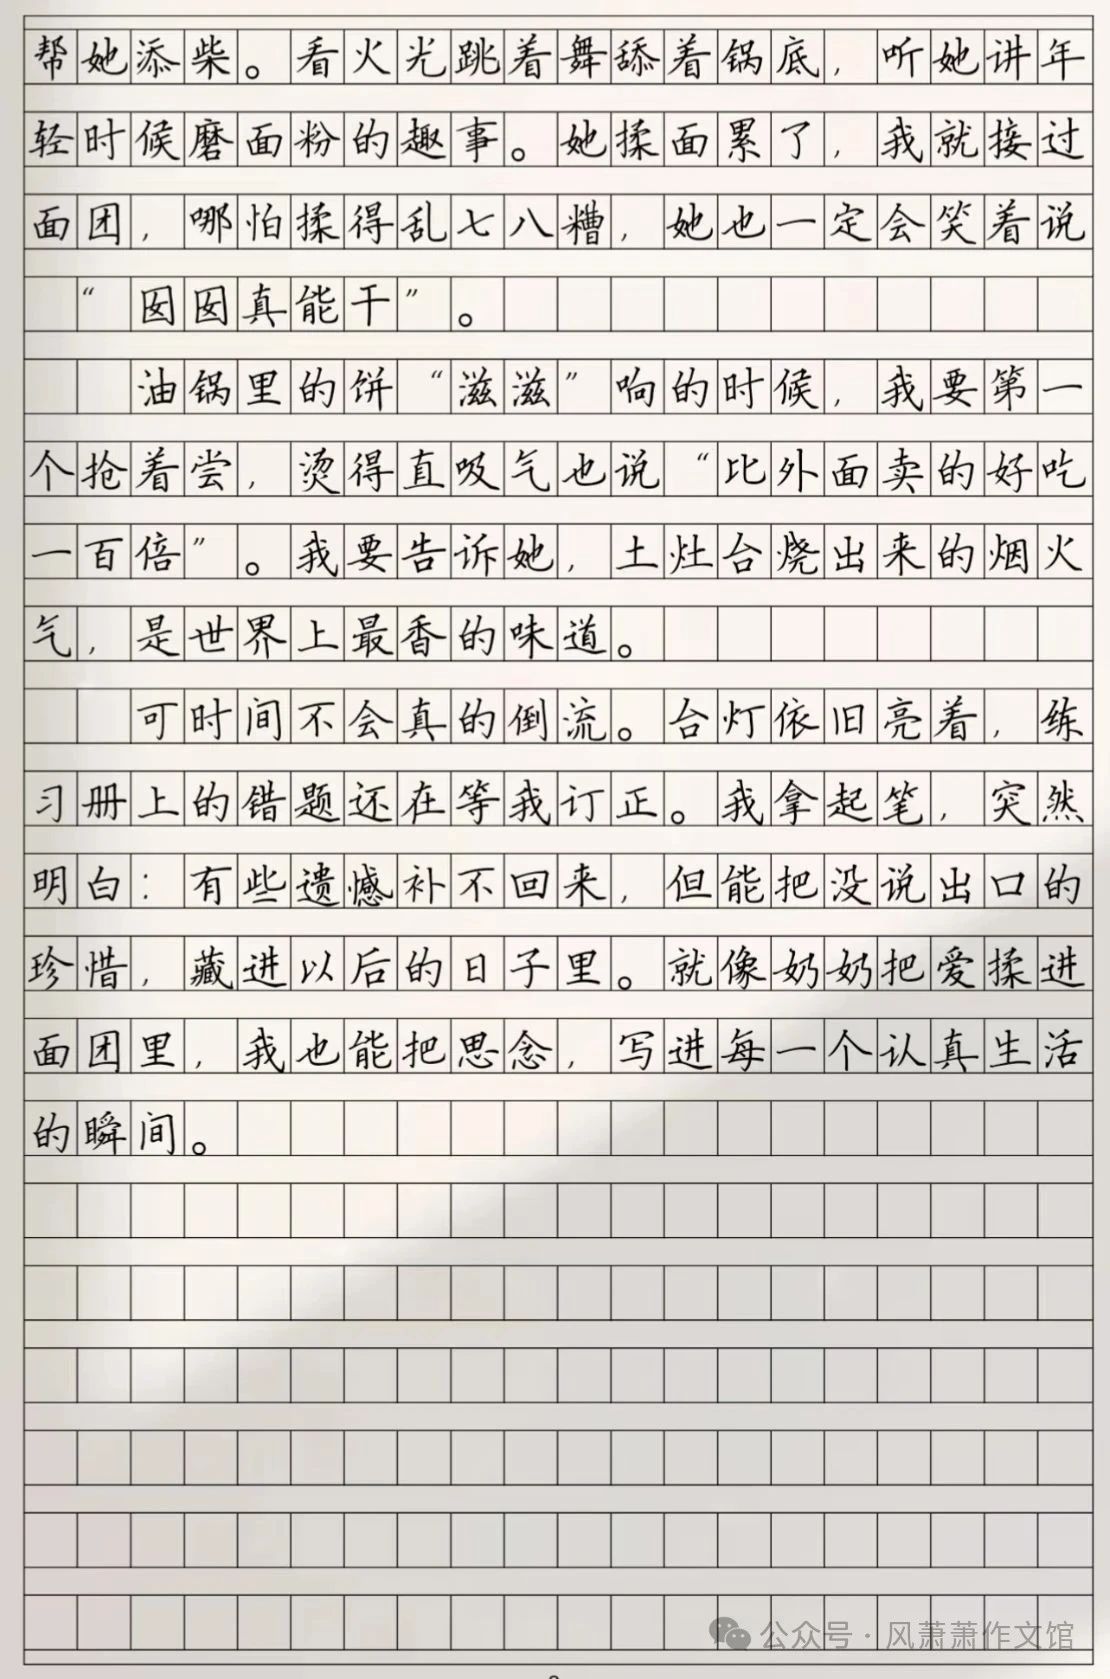 帮她添柴。看火光跳着舞舔着锅底，听她讲年
轻时候磨面粉的趣事。她揉面累了，我就接过
面团，哪怕揉得乱七八糟，她也一定会笑着说
“囡囡真能干”。
油锅里的饼“滋滋”响的时候，我要第一
个抢着尝，烫得直吸气也说“比外面卖的好吃
一百倍”。我要告诉她，土灶台烧出来的烟火
气，是世界上最香的味道。
可时间不会真的倒流。台灯依旧亮着，练
习册上的错题还在等我订正。我拿起笔，突然
明白：有些遗憾补不回来，但能把没说出口的
珍惜，藏进以后的日子里。就像奶奶把爱揉进
面团里，我也能把思念，写进每一个认真生活
的瞬间。
公众号·风萧萧作文馆